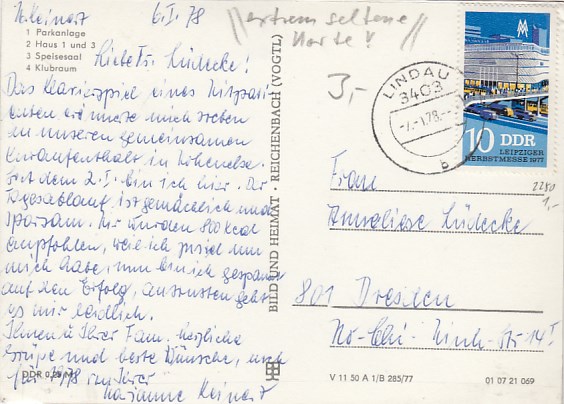 M. Meinert 6.I.78
1 Parkanlage
2 Haus 1 und 3
3 Speisesaal
4 Klubraum
Liebe Fr. Lüdecke!
Das Klavierspiel eines Mitpati-
enten erinnerte mich soeben
an unseren gemeinsamen
Kuraufenthalt in
Seit dem 2.I. bin ich hier. Der
Tagesablauf ist gemächlich und
sparsam. Mir wurden 800 kcal
empfohlen, weil ich zuviel um
mich habe, nun bin ich gespannt
auf den Erfolg, ansonsten geht
es mir leidlich.
Ihnen u. Ihrer Fam. herzliche
Grüße und beste Wünsche, noch
für 1978 von Ihrer
Marianne Meinert
DDR 0,25 M
BILD UND HEIMAT · REICHENBACH (VOGTL)
extrem seltene
Karte!
3,-
LINDAU
3403
-7.-1.78.-
b
MM
10 DDR
LEIPZIGER
HERBSTMESSE 1977
2280
1,-
Frau
Anneliese Lüdecke
801 Dresden
Ho-Chi-Minh-Str 14
V 11 50 A 1/B 285/77
01 07 21 069